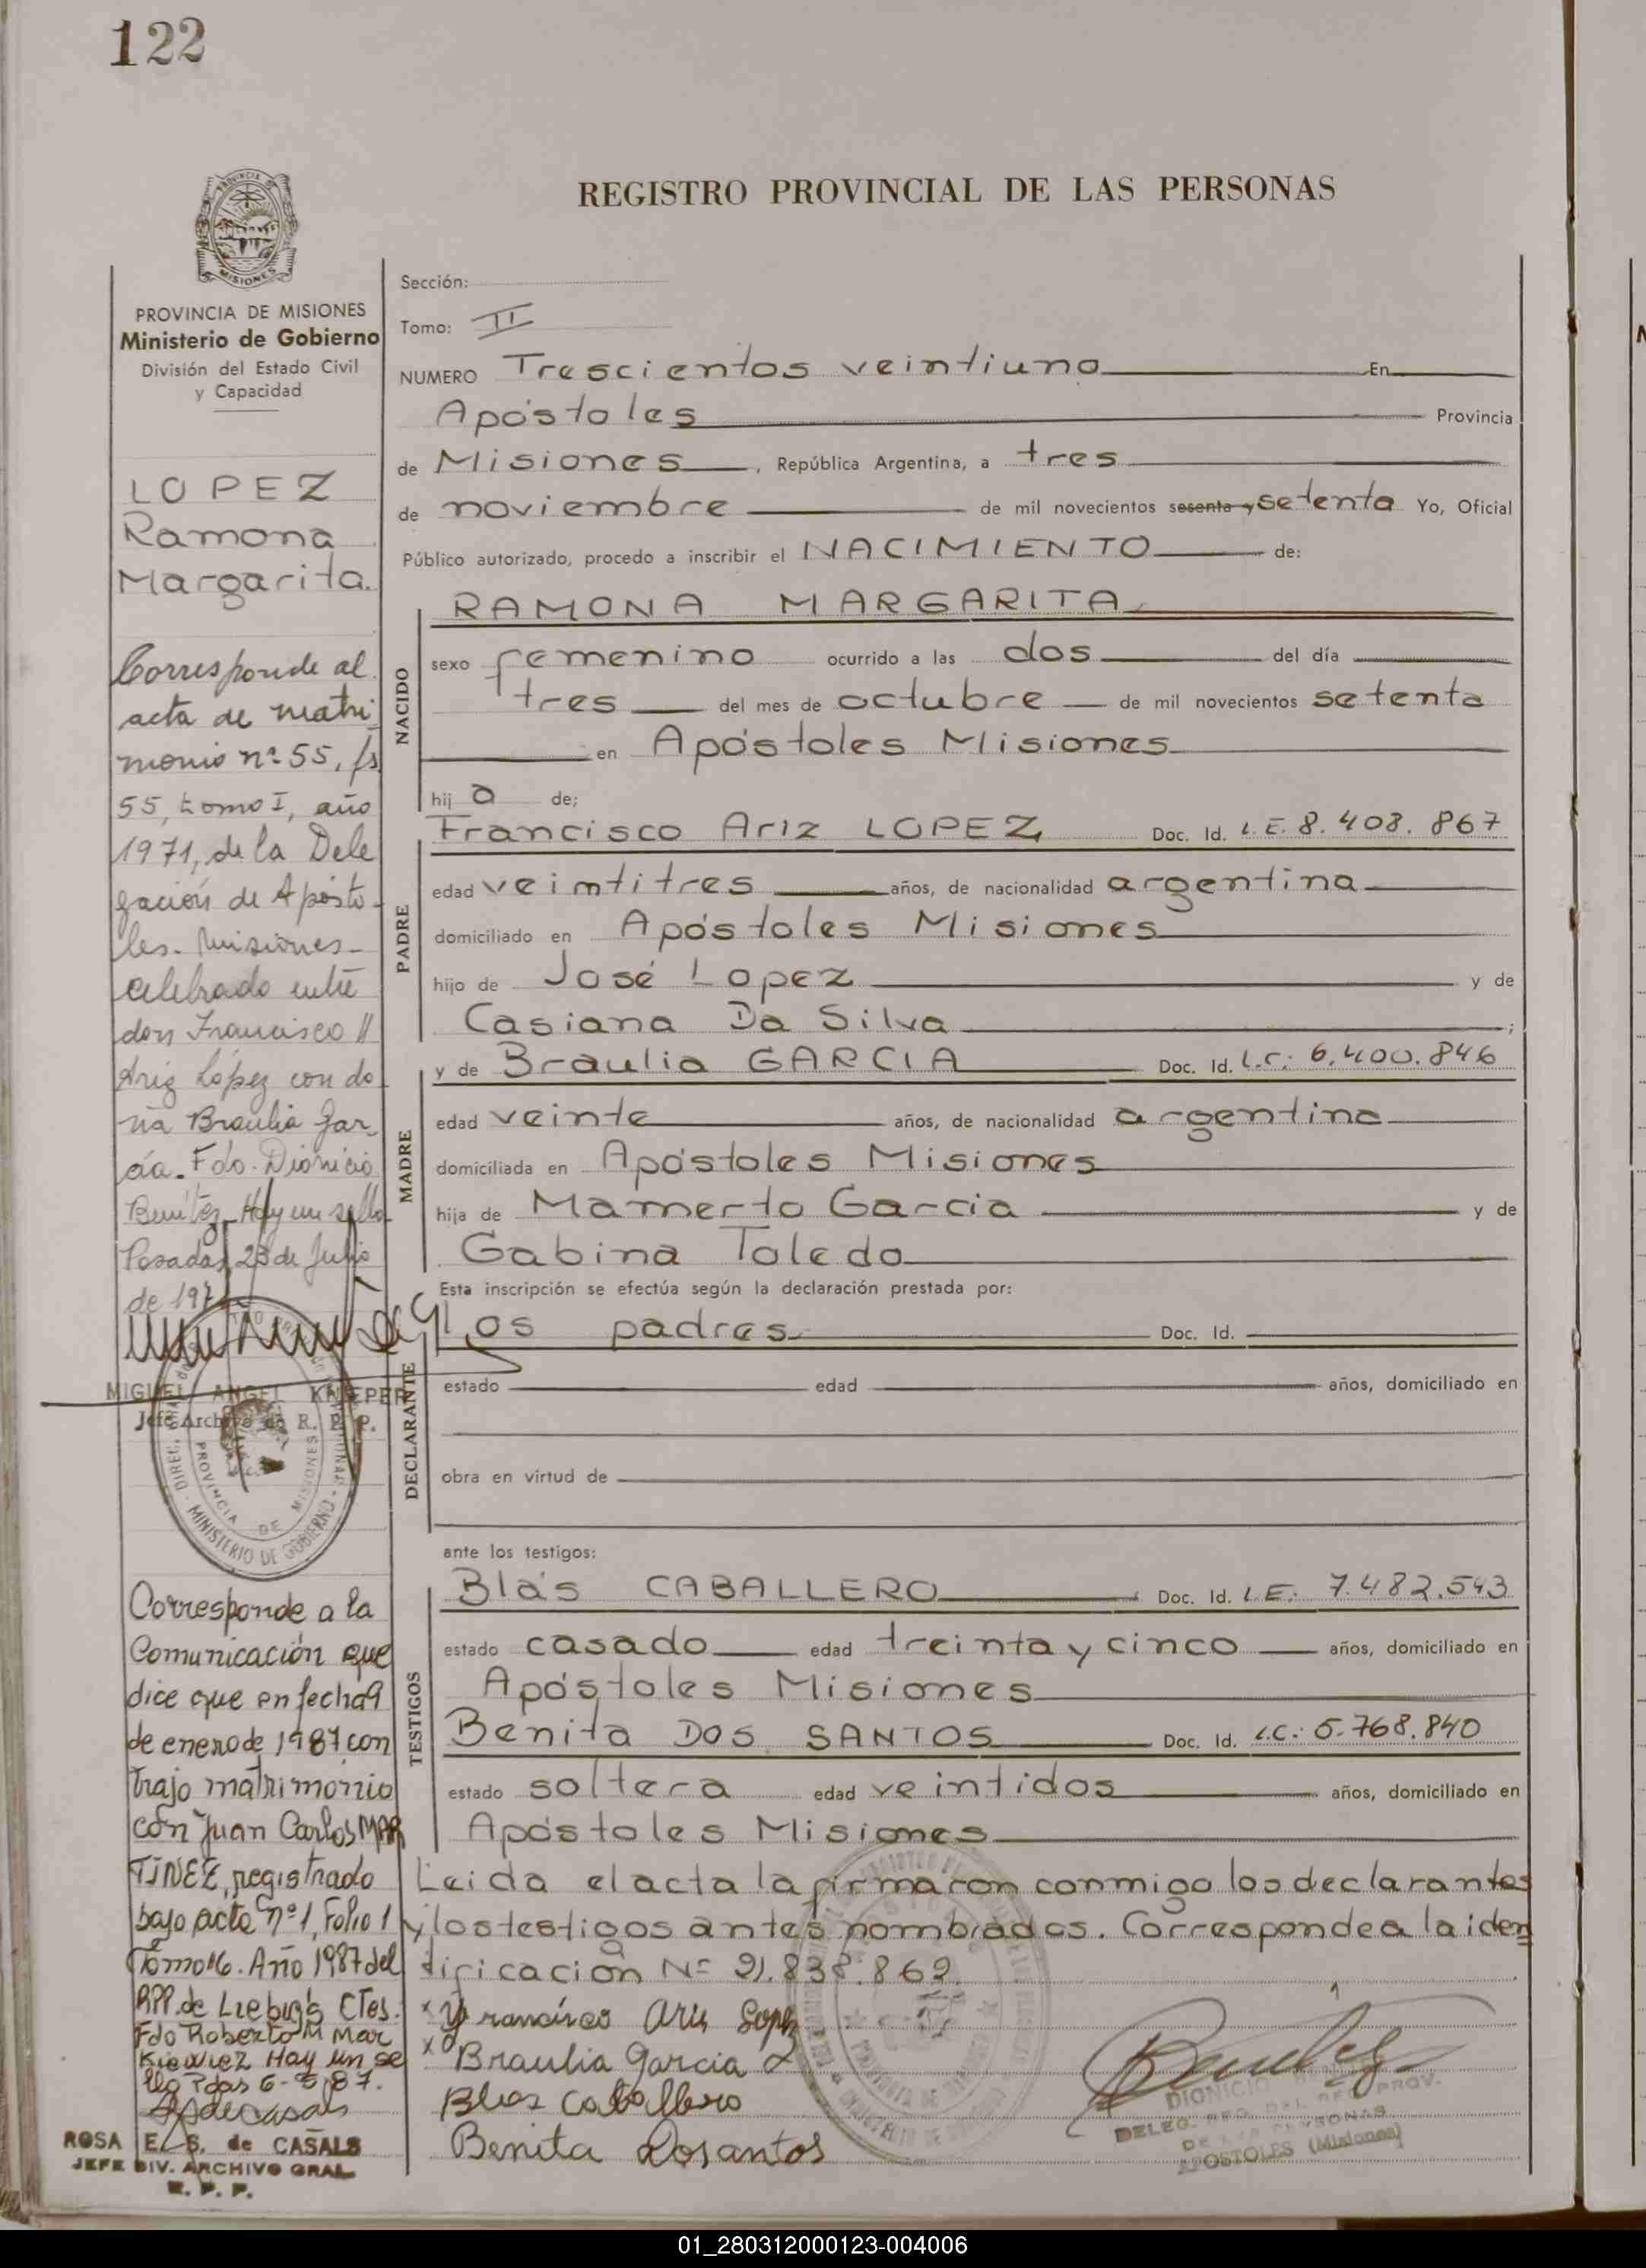 122
REGISTRO PROVINCIAL DE LAS PERSONAS
PROVINCIA DE MISIONES
Ministerio de Gobierno
División del Estado Civil
y Capacidad
LOPEZ
Ramona
Margarita.
Corresponde al
acta de matri
monio nº 55, fs
55, tomo I, año
1971, de la Dele
gación de Aposto
les. Misiones-
celebrado entre
don Francisco
Ariz López con do
ña Braulia Gar
cía. Fdo. Dionicio
Benítez. Hay un sello
Posadas, 23 de Julio
de 197
MIGUEL ANGEL KNIEPER
Jefe Archivo de R. P. P.
MINISTERIO DE GOBIERNO
PROVINCIA DE MISIONES
Corresponde a la
Comunicación que
dice que en fecha 9
de enero de 1987 con
trajo matrimonio
con Juan Carlos MAR
TINEZ, registrado
bajo acta nº 1, Folio 1
Tomo 16. Año 1987 del
RPP. de Liebig's Ctes.
Fdo Roberto M Mar
Kiewiez Hay un se
llo Pdas 6-5-87.
ROSA E. S. de CASALS
JEFE DIV. ARCHIVO GRAL
R. P. P.
Sección:
Tomo: II
NUMERO Trescientos veintiuno En
Apóstoles Provincia
de Misiones, República Argentina, a tres
de noviembre de mil novecientos sesenta y setenta Yo, Oficial
Público autorizado, procedo a inscribir el NACIMIENTO de:
NACIDO
RAMONA MARGARITA
sexo femenino ocurrido a las dos del día
tres del mes de octubre de mil novecientos setenta
en Apóstoles Misiones
hij a de;
PADRE
Francisco Ariz LOPEZ Doc. Id. L.E. 8.408.867
edad veintitres años, de nacionalidad argentina
domiciliado en Apóstoles Misiones
hijo de José Lopez y de
Casiana Da Silva;
MADRE
y de Braulia GARCIA Doc. Id. L.C.: 6.400.846
edad veinte años, de nacionalidad argentina
domiciliada en Apóstoles Misiones
hija de Mamerto Garcia y de
Gabina Toledo
Esta inscripción se efectúa según la declaración prestada por:
DECLARANTE
los padres Doc. Id.
estado edad años, domiciliado en
obra en virtud de
ante los testigos:
TESTIGOS
Blás CABALLERO Doc. Id. L.E.: 7.482.543
estado casado edad treinta y cinco años, domiciliado en
Apóstoles Misiones
Benita DOS SANTOS Doc. Id. L.C.: 5.768.840
estado soltera edad veintidos años, domiciliado en
Apóstoles Misiones
Leida el acta la firmaron conmigo los declarantes
y los testigos antes nombrados. Corresponde a la iden
tificación Nº 21.838.862.
Francisco Aris Lopez
Braulia Garcia
Blas Caballero
Benita Dosantos
DIONICIO
DELEG. REG. DEL REG. PROV.
DE LAS PERSONAS
APOSTOLES (Misiones)
01_280312000123-004006